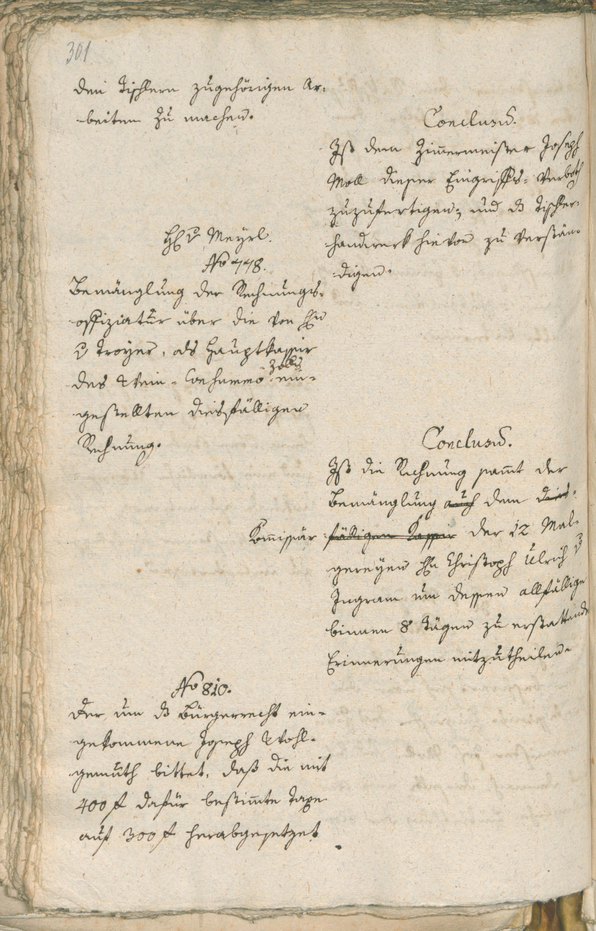 301
den Tischlern zugehörigen Ar-
beiten zu machen.
Conclusũ.
Ist dem Zimmermeister Joseph
Moll dieser Eingriffs-Verboth
zuzufertigen, und dz Tischler-
handwerk hievon zu verstän-
digen.
H: v Meyrl.
No 778.
Bemänglung der Rechnungs-
offiziatur über die von Hn
v Troyer, als Hauptkassir
des Wein- Consumo Zolls ein-
gestellten diesfälligen
Rechnung.
Conclusũ.
Ist die Rechnung sammt der
Bemänglung auch dem dies-
Commissär fälligen Kassir der 12 Mal-
gereyen Hn Christoph Ulrich v
Ingram um dessen allfällige
binnen 8 Tägen zu erstattende
Erinnerungen mitzutheilen.
No 810.
Der um dz Bürgerrecht ein-
gekommene Joseph Wohl-
gemuth bittet, daß die mit
400 f dafür bestimmte Taxe
auf 300 f herabgesetzet